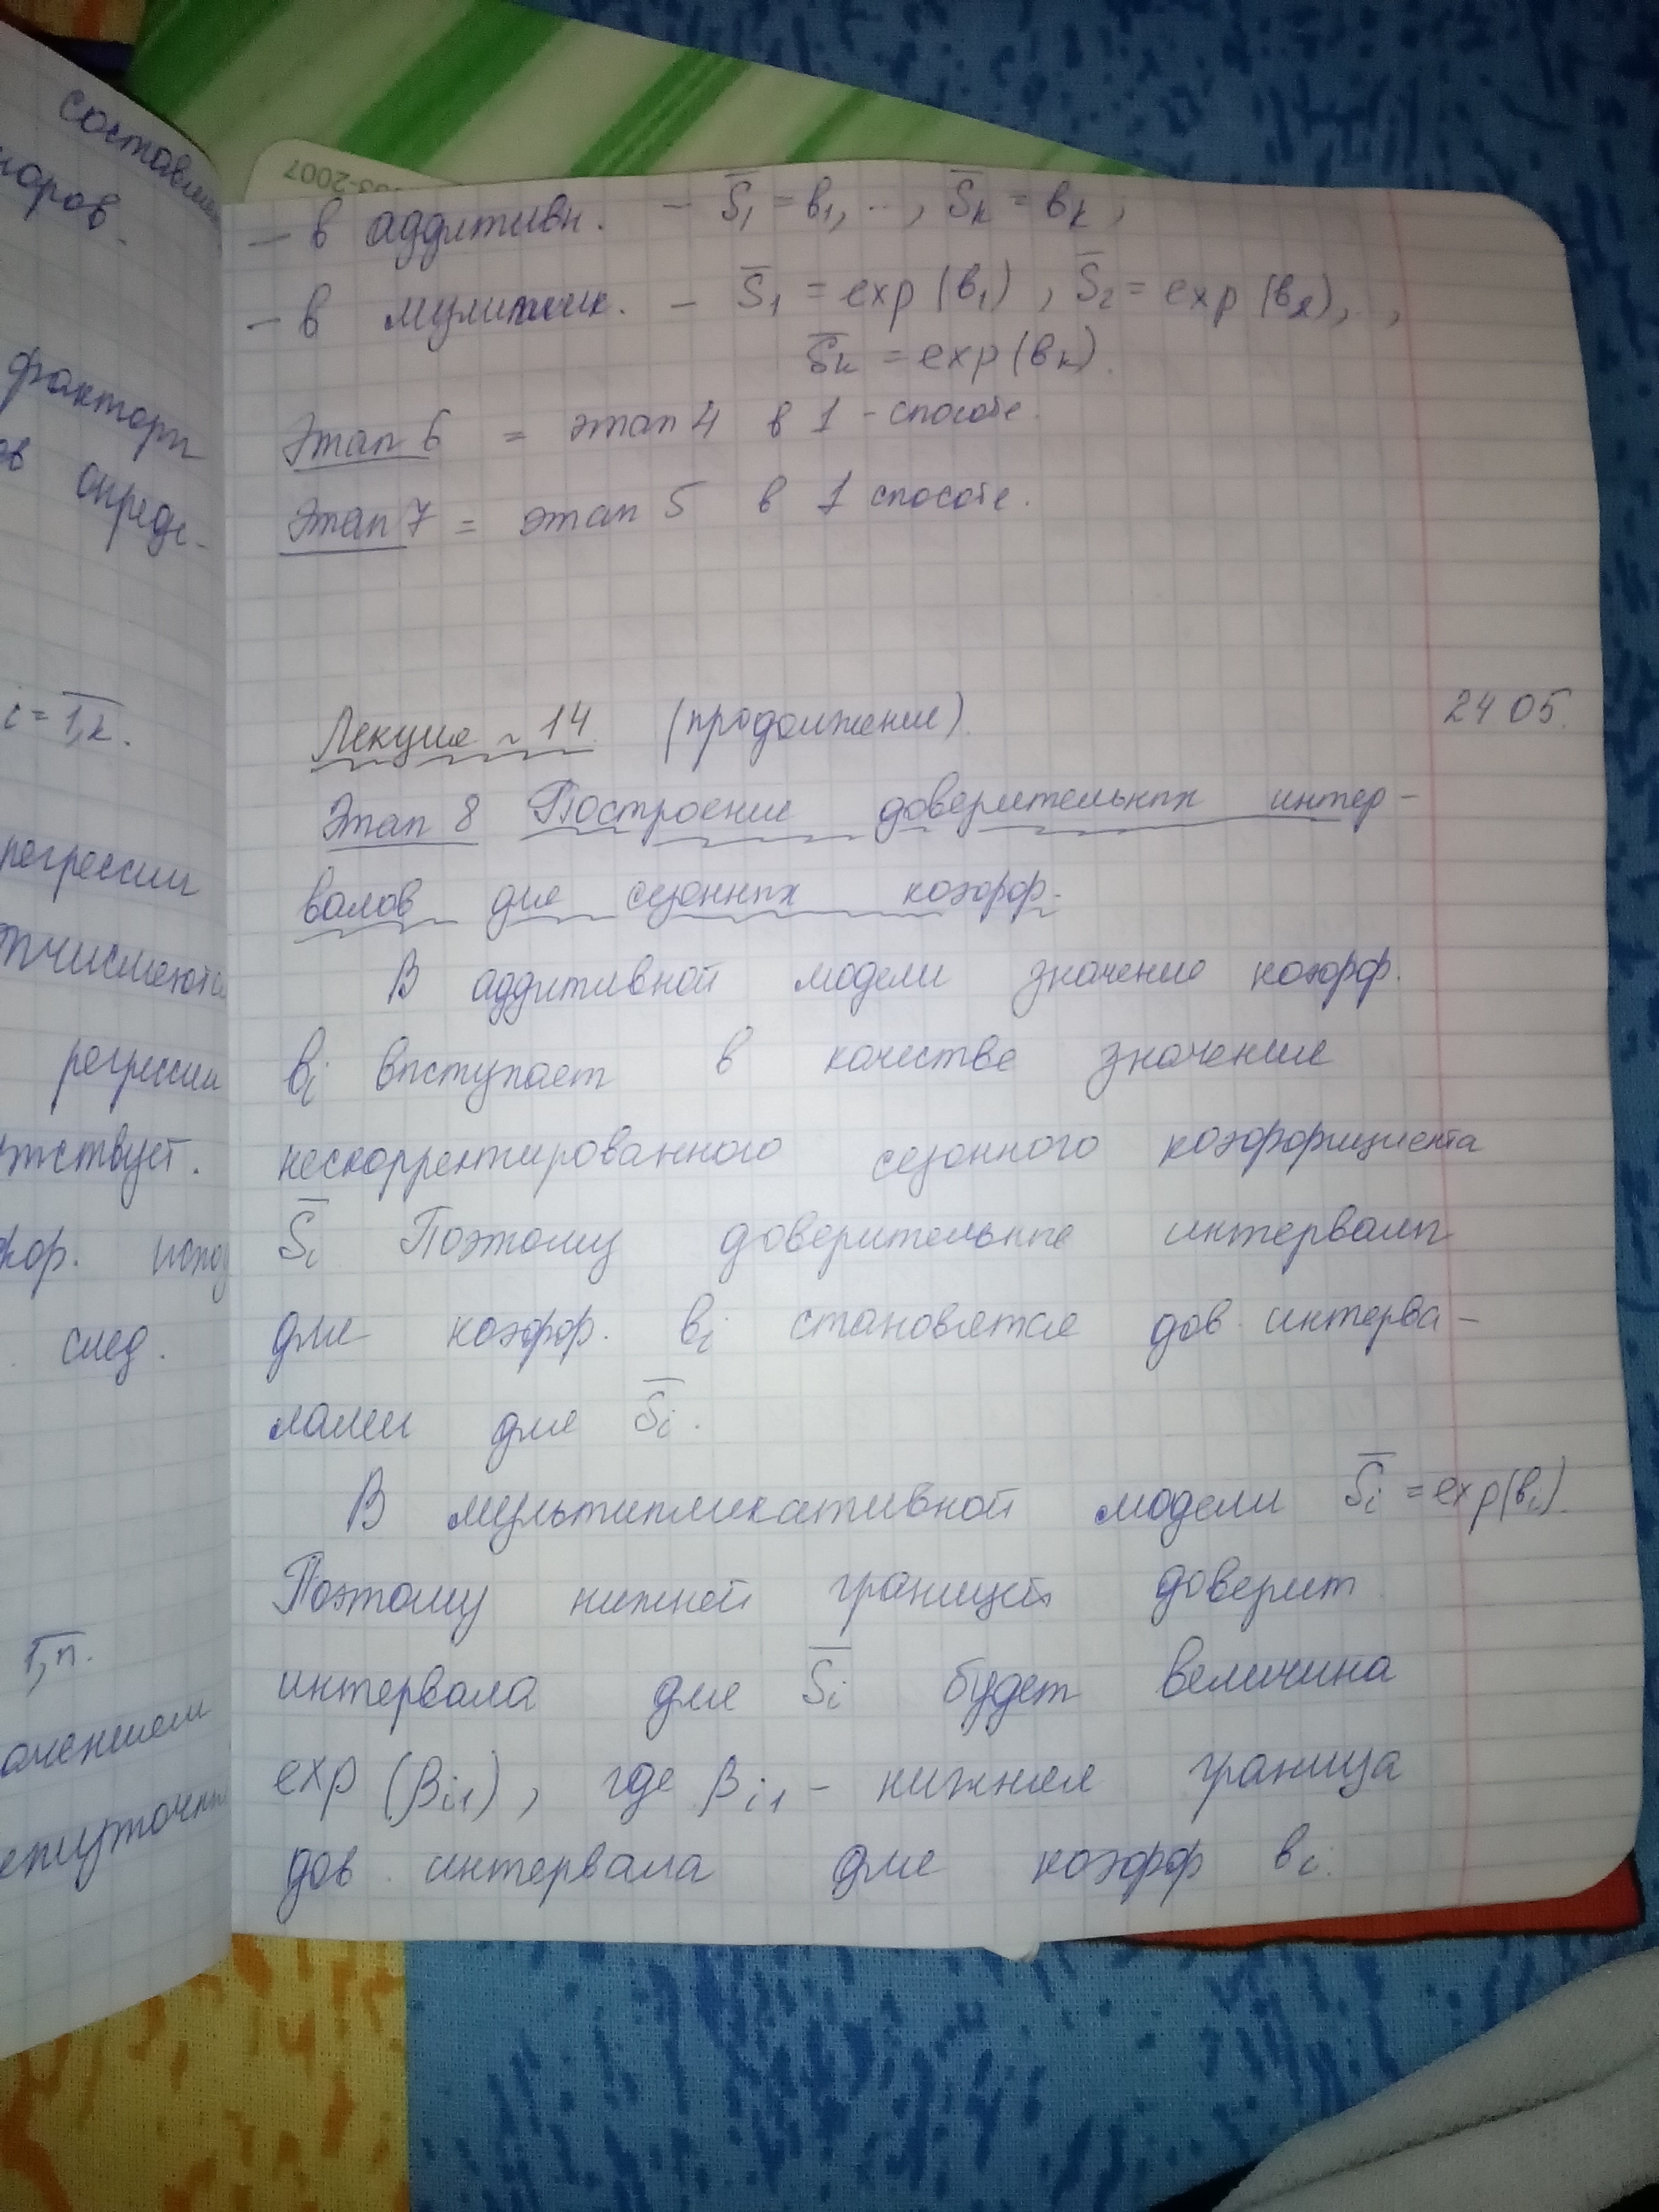 составля
торов.
фактори
ов опреде-
i = 1,k.
регрессии
регрессии
тствует.
след.
1,n.
ачением
03-2007
– в аддитивн. – S̅₁ = в₁, ..., S̅k = вk,
– в мультипл. – S̅₁ = exp(в₁), S̅₂ = exp(в₂), ..,
S̅k = exp(вk).
Этап 6 = этап 4 в 1 - способе.
Этап 7 = этап 5 в 1 способе.
Лекция ~ 14 (продолжение). 24 05.
Этап 8 Построение доверительных интер-
валов для сезонных коэфф.
В аддитивной модели значение коэфф.
вi выступает в качестве значения
нескорректированного сезонного коэффициента
S̅i Поэтому доверительные интервалы
для коэфф. вi становятся дов. интерва-
лами для S̅i.
В мультипликативной модели S̅i = exp(вi).
Поэтому нижней границей доверит.
интервала для S̅i будет величина
exp(βi1), где βi1 – нижняя граница
дов. интервала для коэфф вi.